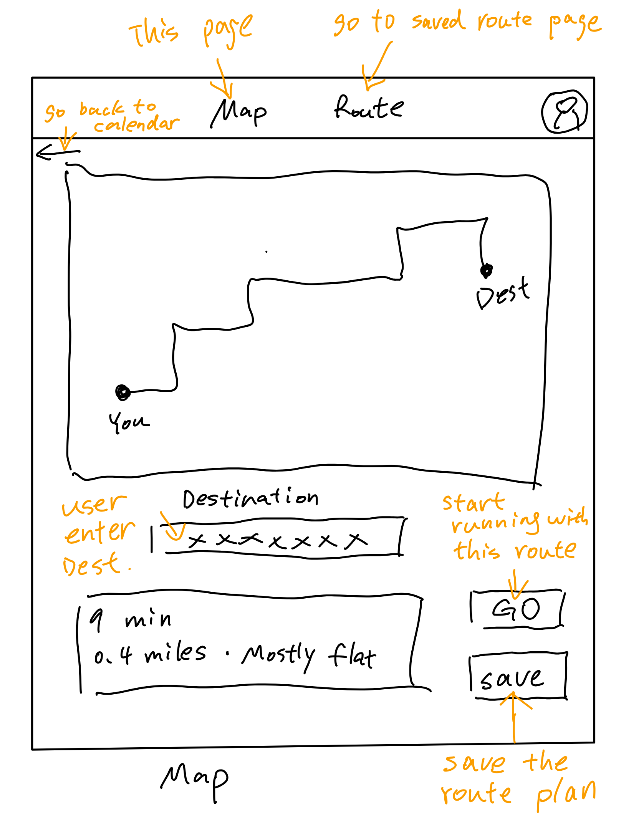 This page
go to saved route page
go back to
calendar
Map
Route
Dest
You
user
enter
Dest.
Destination
xxxxxxx
start
running with
this route
9 min
0.4 miles · Mostly flat
GO
save
Map
save the
route plan